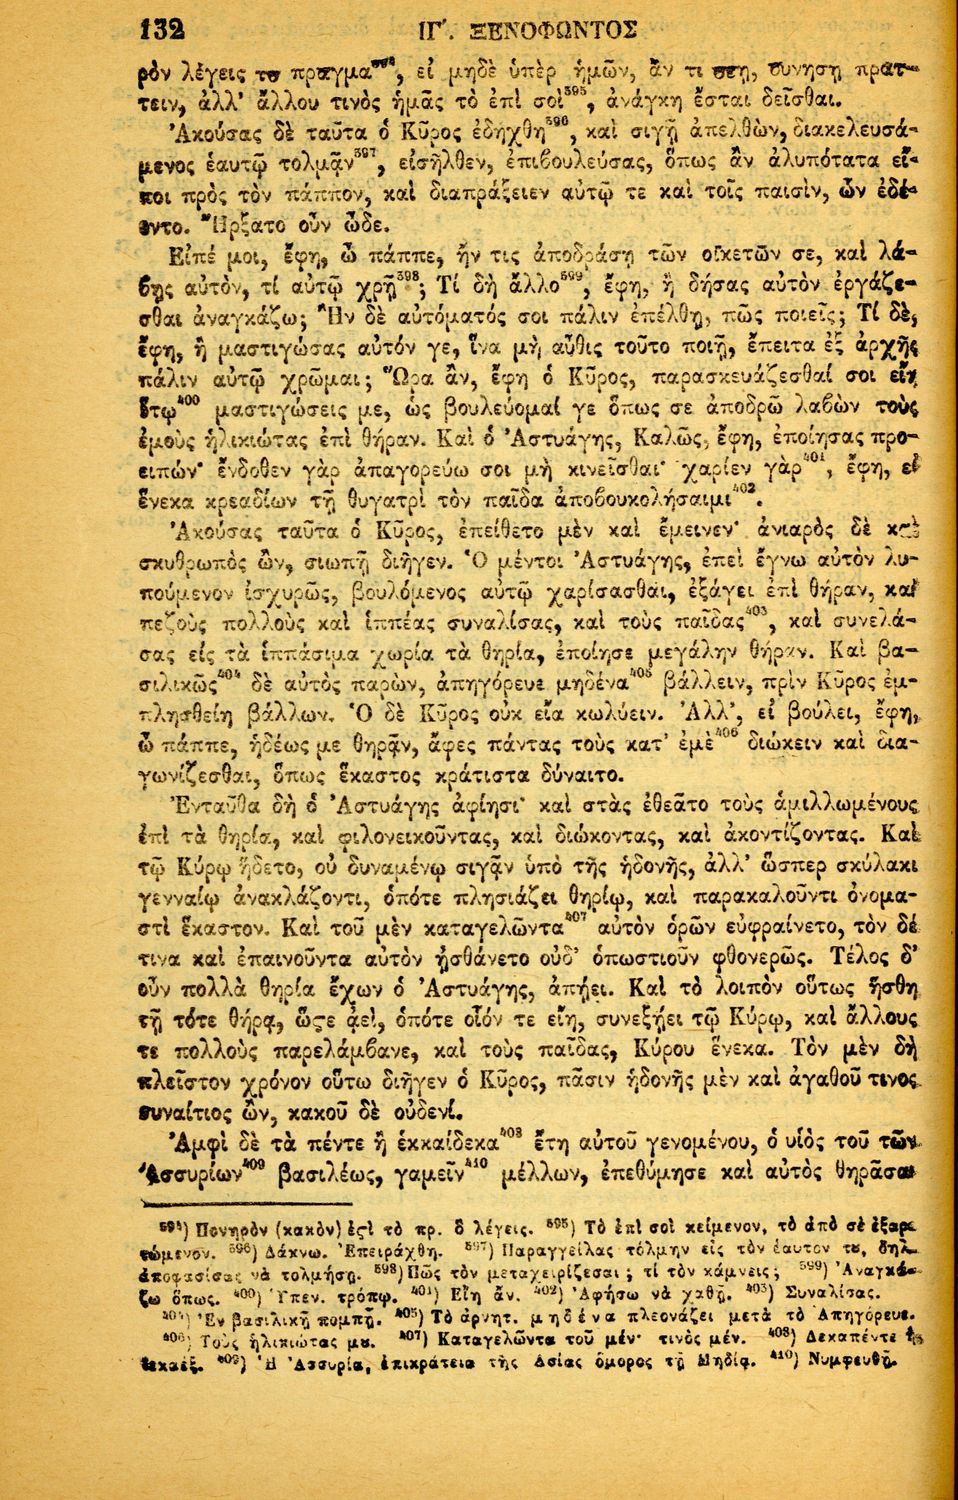 132 ΙΓʹ. ΞΕΝΟΦΩΝΤΟΣ
ρὸν λέγεις τȣ πρᾶγμα³⁹⁴, εἰ μηδὲ ὑπὲρ ἡμῶν, ἄν τι δέῃ, δυνήσῃ πράτ-
τειν, ἀλλ' ἄλλου τινὸς ἡμᾶς τὸ ἐπὶ σοὶ³⁹⁵, ἀνάγκη ἔσται δεῖσθαι.
Ἀκούσας δὲ ταῦτα ὁ Κῦρος ἐδήχθη³⁹⁶, καὶ σιγῇ ἀπελθὼν, διακελευσά-
μενος ἑαυτῷ τολμᾷν³⁹⁷, εἰσῆλθεν, ἐπιβουλεύσας, ὅπως ἂν ἀλυπότατα εἴ-
ποι πρὸς τὸν πάππον, καὶ διαπράξειεν αὑτῷ τε καὶ τοῖς παισὶν, ὧν ἐδέ-
οντο. Ἤρξατο οὖν ὧδε.
Εἰπέ μοι, ἔφη, ὦ πάππε, ἤν τις ἀποδράσῃ τῶν οἰκετῶν σε, καὶ λά-
βῃς αὐτὸν, τί αὐτῷ χρῇ³⁹⁸; Τί δὴ ἄλλο³⁹⁹, ἔφη, ἢ δήσας αὐτὸν ἐργάζε-
σθαι ἀναγκάζω; Ἢν δὲ αὐτόματός σοι πάλιν ἐπέλθῃ, πῶς ποιεῖς; Τί δὲ,
ἔφη, ἢ μαστιγώσας αὐτόν γε, ἵνα μὴ αὖθις τοῦτο ποιῇ, ἔπειτα ἐξ ἀρχῆς
πάλιν αὐτῷ χρῶμαι; Ὥρα ἂν, ἔφη ὁ Κῦρος, παρασκευάζεσθαί σοι εἴη
ὅτῳ⁴⁰⁰ μαστιγώσεις με, ὡς βουλεύομαί γε ὅπως σε ἀποδρῶ λαβὼν τοὺς
ἐμοὺς ἡλικιώτας ἐπὶ θήραν. Καὶ ὁ Ἀστυάγης, Καλῶς, ἔφη, ἐποίησας προ-
ειπών· ἔνδοθεν γὰρ ἀπαγορεύω σοι μὴ κινεῖσθαι· χαρίεν γὰρ⁴⁰¹, ἔφη, εἰ
ἕνεκα κρεαδίων τῇ θυγατρὶ τὸν παῖδα ἀποβουκολήσαιμι⁴⁰².
Ἀκούσας ταῦτα ὁ Κῦρος, ἐπείθετο μὲν καὶ ἔμεινεν· ἀνιαρὸς δὲ καὶ
σκυθρωπὸς ὢν, σιωπῇ διῆγεν. Ὁ μέντοι Ἀστυάγης, ἐπεὶ ἔγνω αὐτὸν λυ-
πούμενον ἰσχυρῶς, βουλόμενος αὐτῷ χαρίσασθαι, ἐξάγει ἐπὶ θήραν, καὶ
πεζοὺς πολλοὺς καὶ ἱππέας συναλίσας, καὶ τοὺς παῖδας⁴⁰³, καὶ συνελά-
σας εἰς τὰ ἱππάσιμα χωρία τὰ θηρία, ἐποίησε μεγάλην θήραν. Καὶ βα-
σιλικῶς⁴⁰⁴ δὲ αὐτὸς παρὼν, ἀπηγόρευε μηδένα⁴⁰⁵ βάλλειν, πρὶν Κῦρος ἐμ-
πλησθείη βάλλων. Ὁ δὲ Κῦρος οὐκ εἴα κωλύειν. Ἀλλ', εἰ βούλει, ἔφη,
ὦ πάππε, ἡδέως με θηρᾷν, ἄφες πάντας τοὺς κατ' ἐμὲ⁴⁰⁶ διώκειν καὶ δια-
γωνίζεσθαι, ὅπως ἕκαστος κράτιστα δύναιτο.
Ἐνταῦθα δὴ ὁ Ἀστυάγης ἀφίησι· καὶ στὰς ἐθεᾶτο τοὺς ἁμιλλωμένους
ἐπὶ τὰ θηρία, καὶ φιλονεικοῦντας, καὶ διώκοντας, καὶ ἀκοντίζοντας. Καὶ
τῷ Κύρῳ ἥδετο, οὐ δυναμένῳ σιγᾷν ὑπὸ τῆς ἡδονῆς, ἀλλ' ὥσπερ σκύλακι
γενναίῳ ἀνακλάζοντι, ὁπότε πλησιάζει θηρίῳ, καὶ παρακαλοῦντι ὀνομα-
στὶ ἕκαστον. Καὶ τοῦ μὲν καταγελῶντα⁴⁰⁷ αὐτὸν ὁρῶν εὐφραίνετο, τὸν δέ
τινα καὶ ἐπαινοῦντα αὐτὸν ᾐσθάνετο οὐδ' ὁπωστιοῦν φθονερῶς. Τέλος δ'
οὖν πολλὰ θηρία ἔχων ὁ Ἀστυάγης, ἀπῄει. Καὶ τὸ λοιπὸν οὕτως ἥσθη
τῇ τότε θήρᾳ, ὥϛε ἀεὶ, ὁπότε οἷόν τε εἴη, συνεξῄει τῷ Κύρῳ, καὶ ἄλλους
τε πολλοὺς παρελάμβανε, καὶ τοὺς παῖδας, Κύρου ἕνεκα. Τὸν μὲν δὴ
πλεῖστον χρόνον οὕτω διῆγεν ὁ Κῦρος, πᾶσιν ἡδονῆς μὲν καὶ ἀγαθοῦ τινος
συναίτιος ὢν, κακοῦ δὲ οὐδενί.
Ἀμφὶ δὲ τὰ πέντε ἢ ἑκκαίδεκα⁴⁰⁸ ἔτη αὐτοῦ γενομένου, ὁ υἱὸς τοῦ τῶν
Ἀσσυρίων⁴⁰⁹ βασιλέως, γαμεῖν⁴¹⁰ μέλλων, ἐπεθύμησε καὶ αὐτὸς θηρᾶσαι
³⁹⁴) Πονηρὸν (κακὸν) ἐϛὶ τὸ πρ. ὃ λέγεις. ³⁹⁵) Τὸ ἐπὶ σοὶ κείμενον, τὸ ἀπὸ σὲ ἐξαρ-
τώμενον. ³⁹⁶) Δάκνω. Ἐπειράχθη. ³⁹⁷) Παραγγείλας τόλμην εἰς τὸν ἑαυτον τȣ, δηλ.
ἀποφασίσας νὰ τολμήσῃ. ³⁹⁸) Πῶς τὸν μεταχειρίζεσαι; τί τὸν κάμνεις; ³⁹⁹) Ἀναγκά-
ζω ὅπως. ⁴⁰⁰) Ὑπεν. τρόπῳ. ⁴⁰¹) Εἴη ἄν. ⁴⁰²) Ἀφήσω νὰ χαθῇ. ⁴⁰³) Συναλίσας.
⁴⁰⁴) Ἐν βασιλικῇ πομπῇ. ⁴⁰⁵) Τὸ ἀρνητ. μηδένα πλεονάζει μετὰ τὸ Ἀπηγόρευε.
⁴⁰⁶) Τοὺς ἡλικιώτας μȣ. ⁴⁰⁷) Καταγελῶντα τοῦ μέν· τινὸς μέν. ⁴⁰⁸) Δεκαπέντε ἢ
δεκαέξ. ⁴⁰⁹) Ἡ Ἀσσυρία, ἐπικράτεια τῆς Ἀσίας ὅμορος τῇ Μηδίᾳ. ⁴¹⁰) Νυμφευθῇ.